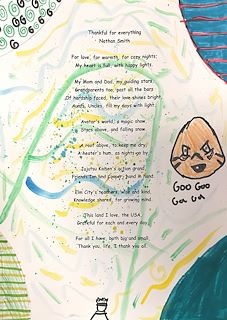 Thankful for everything
Nathan Smith
For love, for warmth, for cozy nights,
My heart is full, with happy lights.
My Mom and Dad, my guiding stars
Grandparents too, past all the bars
Of hardship faced, their love shines bright
Aunts, Uncles, fill my days with light.
Avatar's world, a magic show
Stars above, and falling snow
A roof above, to keep me dry,
A heater's hum, as nights go by
Jujutsu Kaisen's action grand,
Friends I've find forever, hand in hand.
Elm City's teachers, wise and kind,
Knowledge shared, for growing mind.
This land I love, the USA,
Grateful for each and every day,
For all I have, both big and small,
Thank you, life, I thank you all.
Goo Goo
Ga Ga